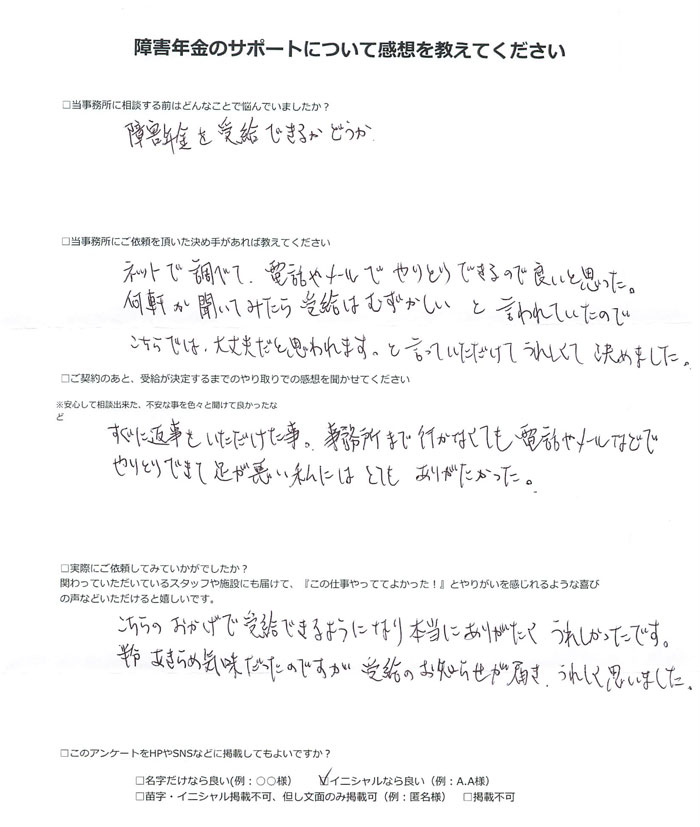 障害年金のサポートについて感想を教えてください
□当事務所に相談する前はどんなことで悩んでいましたか？
障害年金を受給できるかどうか
□当事務所にご依頼を頂いた決め手があれば教えてください
ネットで調べて、電話やメールでやりとりできるので良いと思った。
何軒か聞いてみたら受給はむずかしいと言われていたので
こちらでは、大丈夫だと思われます。と言っていただけてうれしくて決めました。
□ご契約のあと、受給が決定するまでのやり取りでの感想を聞かせてください
※安心して相談出来た、不安な事を色々と聞けて良かったな
ど
すぐに返事をいただけた事。事務所まで行かなくても電話やメールなどで
やりとりできて足が悪い私にはとてもありがたかった。
□実際にご依頼してみていかがでしたか？
関わっていただいているスタッフや施設にも届けて、『この仕事やっててよかった！』とやりがいを感じれるような喜び
の声などいただけると嬉しいです。
こちらのおかげで受給できるようになり本当にありがたくうれしかったです。
半分あきらめ気味だったのですが受給のお知らせが届き、うれしく思いました。
□このアンケートをHPやSNSなどに掲載してもよいですか？
□名字だけなら良い(例：○○様) ☑イニシャルなら良い（例：A.A様）
□苗字・イニシャル掲載不可、但し文面のみ掲載可（例：匿名様） □掲載不可